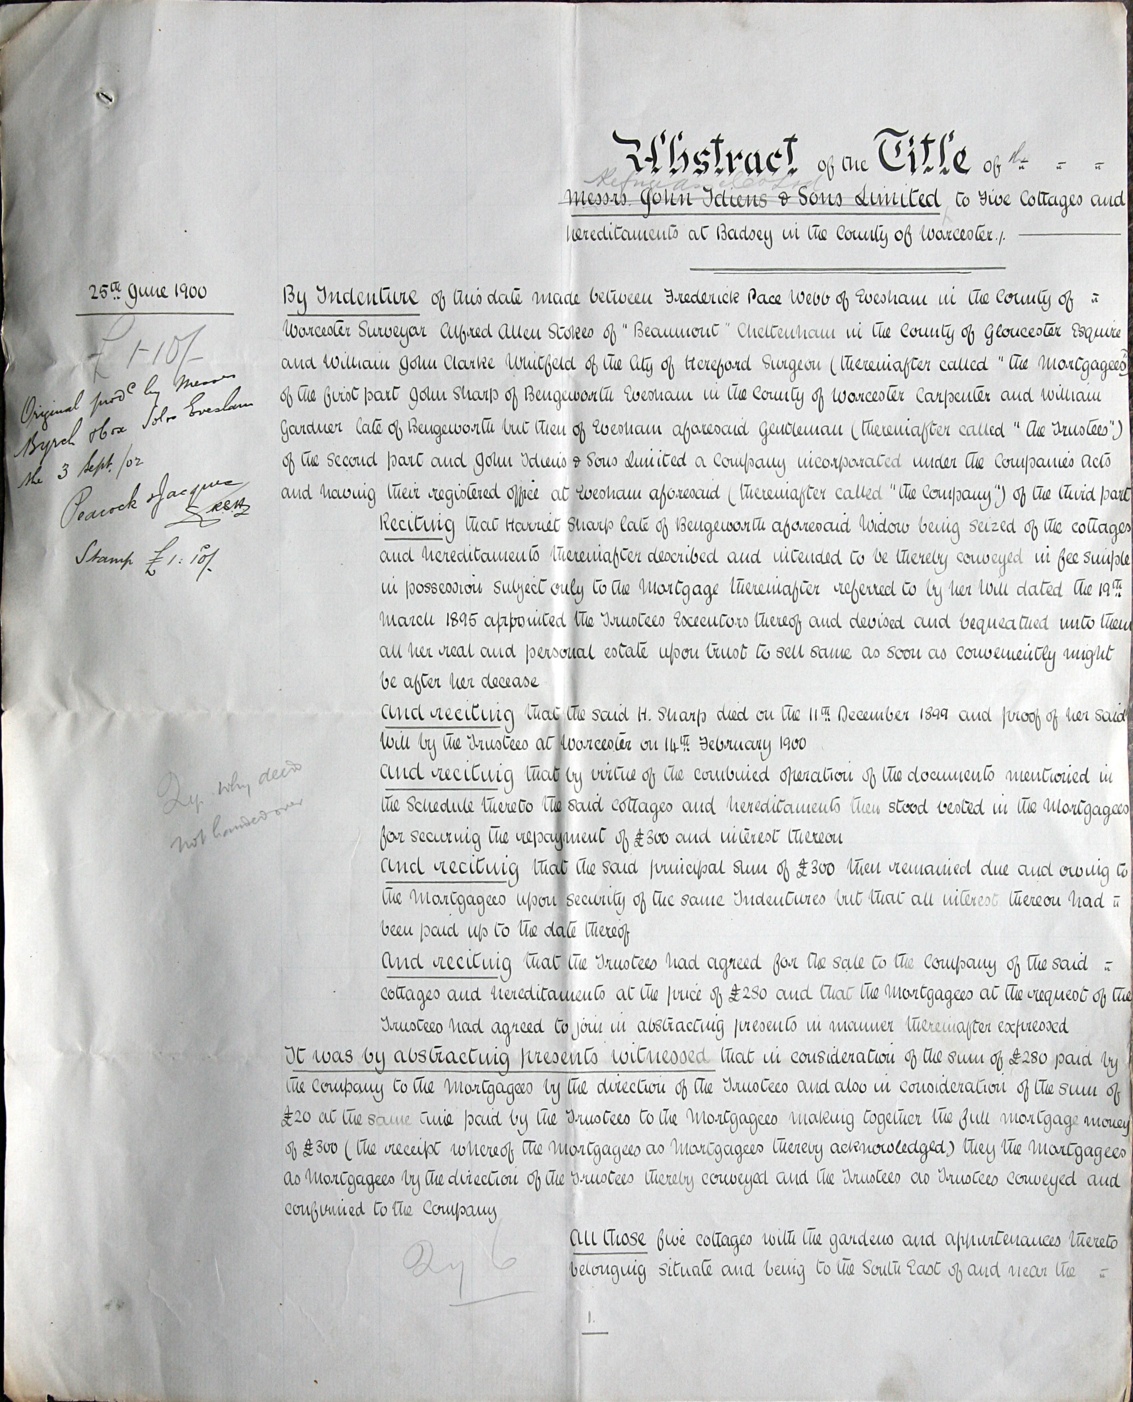 Abstract of the Title of
Messrs. John Idiens & Sons Limited to Five Cottages and
hereditaments at Badsey in the County of Worcester./.
25th June 1900
£1-10/-
Original prodd by Messrs
Byrch & Cox Solrs Evesham
the 3 Sept./02
Peacock & Jacques
Stamp £1:10/-
By Indenture of this date made between Frederick Pace Webb of Evesham in the County of
Worcester Surveyor Alfred Allen Stokes of "Beaumont" Cheltenham in the County of Gloucester Esquire
and William John Clarke Whitfeld of the City of Hereford Surgeon (thereinafter called "the Mortgagees"
of the first part John Sharp of Bengeworth Evesham in the County of Worcester Carpenter and William
Gardner late of Bengeworth but then of Evesham aforesaid Gentleman (thereinafter called "the Trustees")
of the second part and John Idiens & Sons Limited a Company incorporated under the Companies Acts
and having their registered office at Evesham aforesaid (thereinafter called "the Company") of the third part
Reciting that Harriet Sharp late of Bengeworth aforesaid Widow being seized of the cottages
and hereditaments thereinafter described and intended to be thereby conveyed in fee simple
in possession subject only to the Mortgage thereinafter referred to by her Will dated the 19th
March 1895 appointed the Trustees Executors thereof and devised and bequeathed unto them
all her real and personal estate upon trust to sell same as soon as conveniently might
be after her decease
And reciting that the said H. Sharp died on the 11th December 1899 and proof of her said
Will by the Trustees at Worcester on 14th February 1900
And reciting that by virtue of the combined operation of the documents mentioned in
the Schedule thereto the said cottages and hereditaments then stood vested in the Mortgagees
for securing the repayment of £300 and interest thereon
Qy. why deeds
not handed over
And reciting that the said principal sum of £300 then remained due and owing to
the Mortgagees upon security of the same Indentures but that all interest thereon had
been paid up to the date thereof
And reciting that the Trustees had agreed for the sale to the Company of the said
cottages and hereditaments at the price of £280 and that the Mortgagees at the request of the
Trustees had agreed to join in abstracting presents in manner thereinafter expressed
It was by abstracting presents witnessed that in consideration of the sum of £280 paid by
the Company to the Mortgagees by the direction of the Trustees and also in consideration of the sum of
£20 at the same time paid by the Trustees to the Mortgagees making together the full mortgage money
of £300 (the receipt whereof the Mortgagees as Mortgagees thereby acknowledged) they the Mortgagees
as Mortgagees by the direction of the Trustees thereby conveyed and the Trustees as Trustees conveyed and
confirmed to the Company
All those five cottages with the gardens and appurtenances thereto
belonging situate and being to the South East of and near the
Qy 6
1.